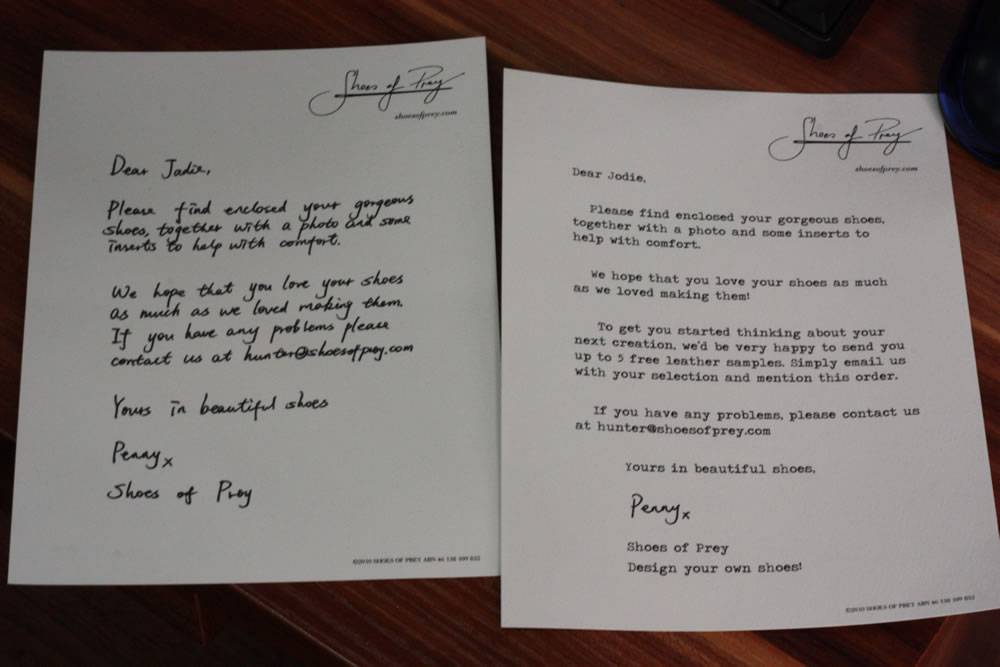 Shoes of Prey
shoesofprey.com
Dear Jodie,
Please find enclosed your gorgeous
shoes, together with a photo and some
inserts to help with comfort.
We hope that you love your shoes
as much as we loved making them.
If you have any problems please
contact us at hunter@shoesofprey.com
Yours in beautiful shoes
Penny x
Shoes of Prey
©2010 SHOES OF PREY ABN 46 138 509 852
Shoes of Prey
shoesofprey.com
Dear Jodie,
Please find enclosed your gorgeous shoes,
together with a photo and some inserts to
help with comfort.
We hope that you love your shoes as much
as we loved making them!
To get you started thinking about your
next creation, we'd be very happy to send you
up to 5 free leather samples. Simply email us
with your selection and mention this order.
If you have any problems, please contact us
at hunter@shoesofprey.com
Yours in beautiful shoes,
Penny x
Shoes of Prey
Design your own shoes!
©2010 SHOES OF PREY ABN 46 138 509 852